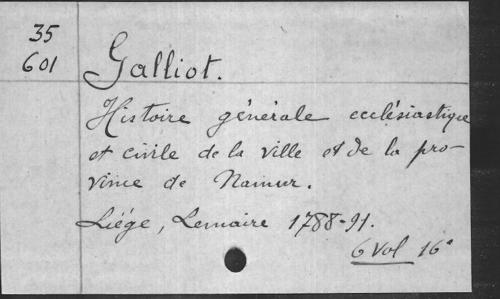 35
601
Galliot.
Histoire générale ecclésiastique
et civile de la ville et de la pro-
vince de Namur.
Liége, Lemaire 1788-91.
6 Vol 16°